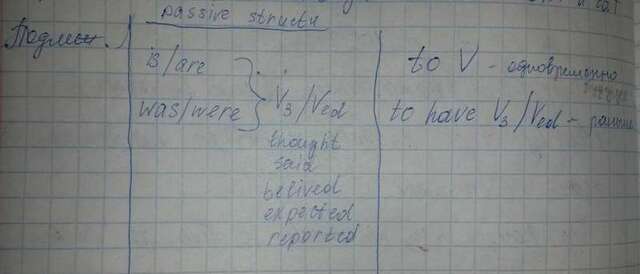 passive structu
Подлеж.
is/are
was/were } V3/Ved
thought
said
belived
expected
reported
to V - одновременно
to have V3/Ved - раньше